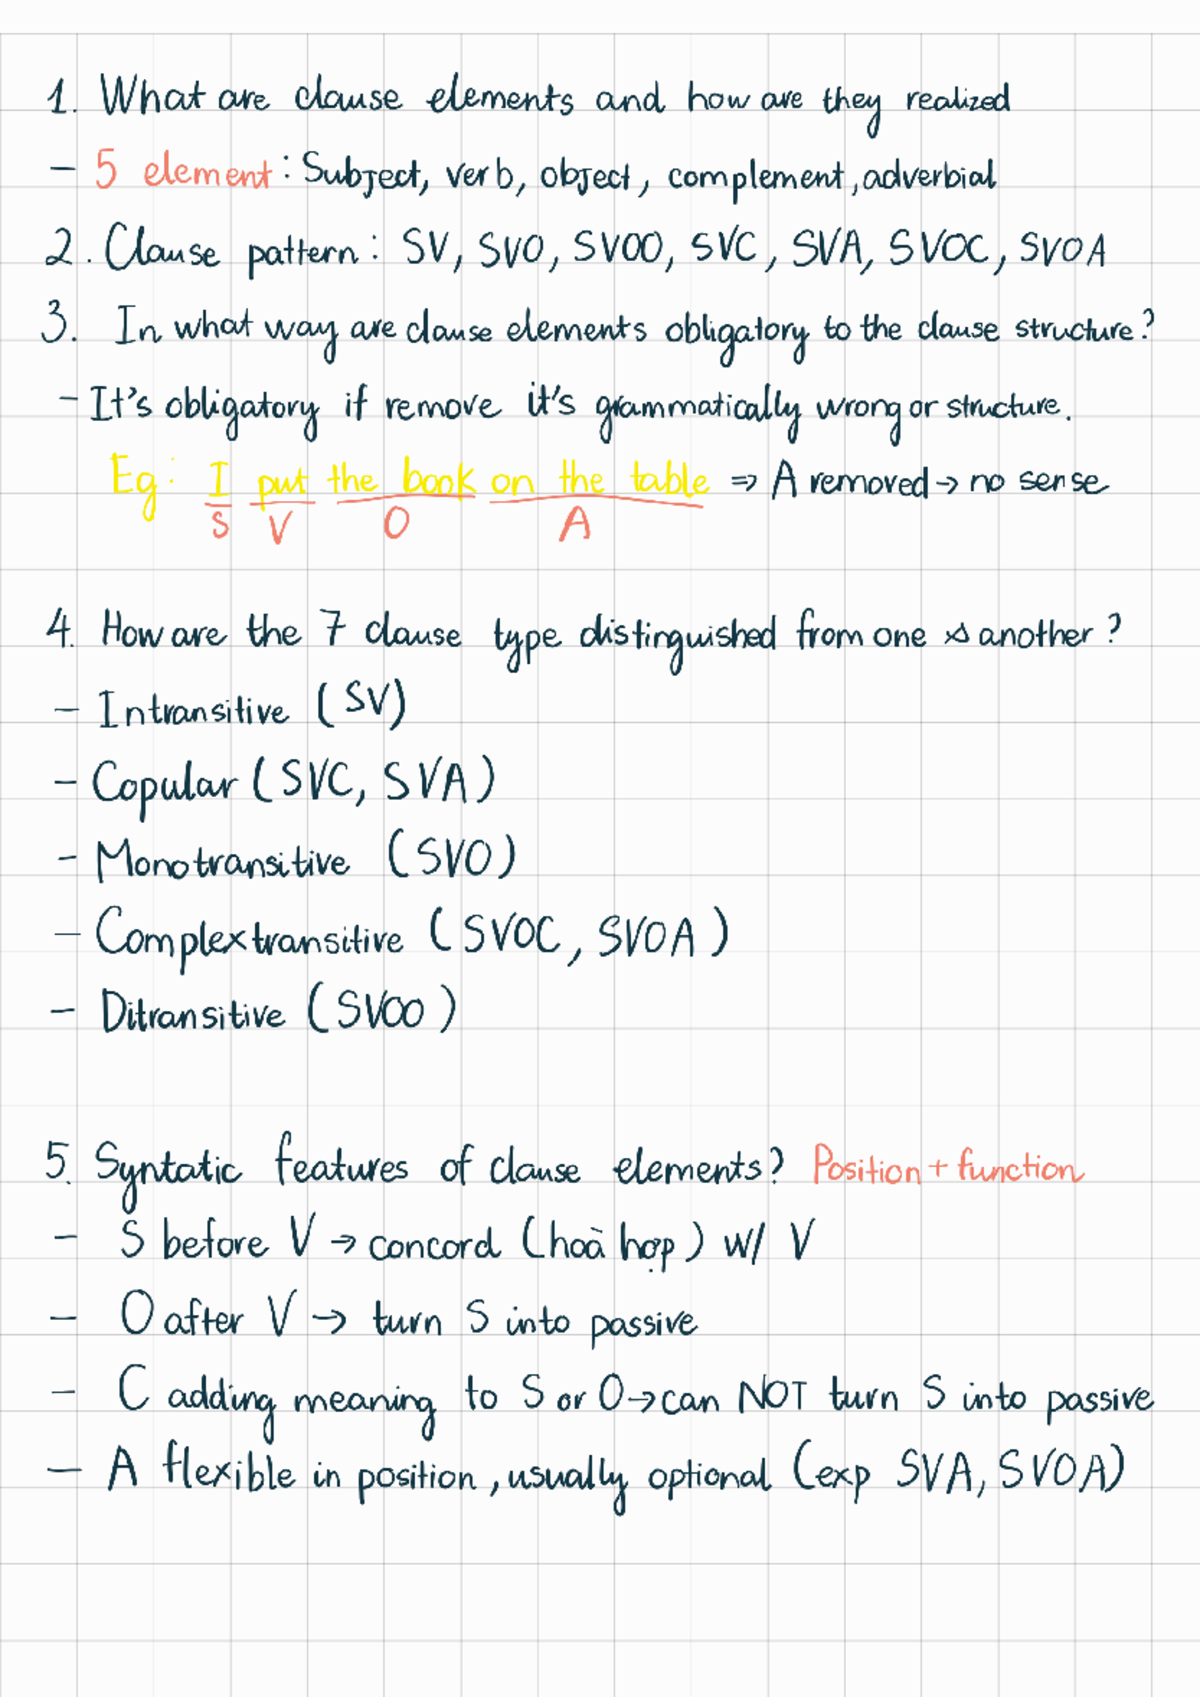 1. What are clause elements and how are they realized
- 5 element: Subject, verb, object, complement, adverbial
2. Clause pattern: SV, SVO, SVOO, SVC, SVA, SVOC, SVOA
3. In what way are clause elements obligatory to the clause structure?
- It's obligatory if remove it's grammatically wrong or structure.
Eg: I put the book on the table ⇒ A removed → no sense
S V O A
4. How are the 7 clause type distinguished from one another?
- Intransitive (SV)
- Copular (SVC, SVA)
- Monotransitive (SVO)
- Complextransitive (SVOC, SVOA)
- Ditransitive (SVOO)
5. Syntatic features of clause elements? Position + function
- S before V → concord (hoà hợp) w/ V
- O after V → turn S into passive
- C adding meaning to S or O → can NOT turn S into passive
- A flexible in position, usually optional (exp SVA, SVOA)